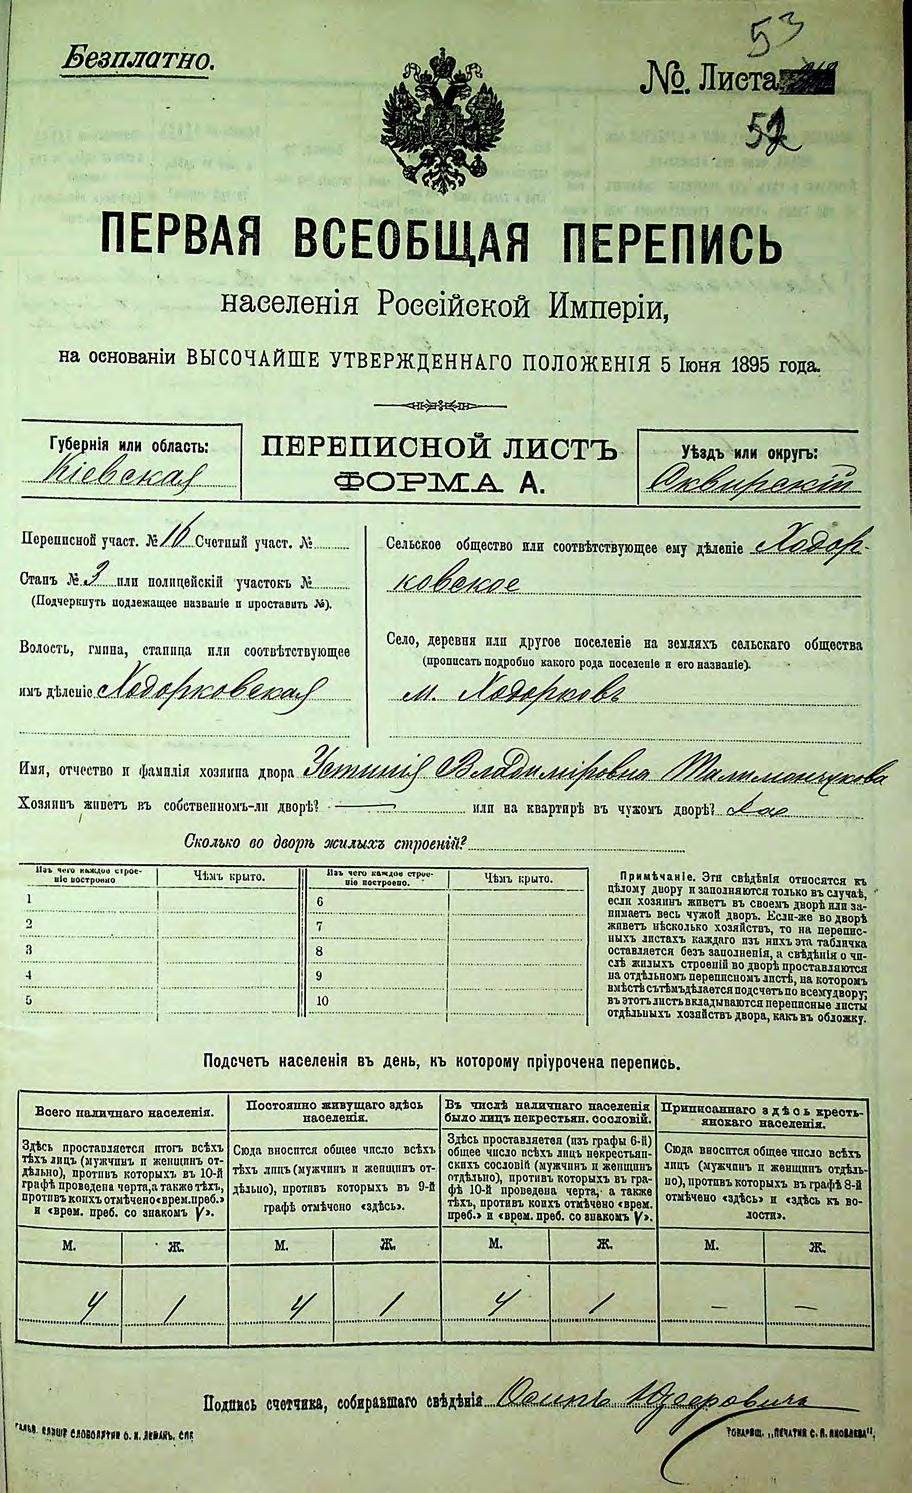 53
Безплатно.
№. Листа
52
ПЕРВАЯ ВСЕОБЩАЯ ПЕРЕПИСЬ
населенія Россійской Имперіи,
на основаніи ВЫСОЧАЙШЕ УТВЕРЖДЕННАГО ПОЛОЖЕНІЯ 5 Іюня 1895 года.
Губернія или область:
Кіевская
ПЕРЕПИСНОЙ ЛИСТЪ
ФОРМА А.
Уѣздъ или округъ:
Сквирскій
Переписной участ. № 16 Счетный участ. №
Станъ № 3 или полицейскій участокъ №
(Подчеркнуть подлежащее названіе и проставить №).
Волость, гмина, станица или соотвѣтствующее
имъ дѣленіе Ходорковская
Сельское общество или соотвѣтствующее ему дѣленіе Ходор-
ковское
Село, деревня или другое поселеніе на земляхъ сельскаго общества
(прописать подробно какого рода поселеніе и его названіе).
м. Ходорковъ
Имя, отчество и фамилія хозяина двора Устинія Владиміровна Талимончукова
Хозяинъ живетъ въ собственномъ-ли дворѣ? или на квартирѣ въ чужомъ дворѣ?
Сколько во дворѣ жилыхъ строеній?
Изъ чего каждое строе-
ніе построено
Чѣмъ крыто.
Изъ чего каждое строе-
ніе построено.
Чѣмъ крыто.
1
2
3
4
5
6
7
8
9
10
Примѣчаніе. Эти свѣдѣнія относятся къ
цѣлому двору и заполняются только въ случаѣ,
если хозяинъ живетъ въ своемъ дворѣ или за-
нимаетъ весь чужой дворъ. Если-же во дворѣ
живетъ нѣсколько хозяйствъ, то на перепис-
ныхъ листахъ каждаго изъ нихъ эта табличка
оставляется безъ заполненія, а свѣдѣнія о чи-
слѣ жилыхъ строеній во дворѣ проставляются
на отдѣльномъ переписномъ листѣ, на которомъ
вмѣстѣ съ тѣмъ дѣлается подсчетъ по всему двору;
въ этотъ листъ вкладываются переписные листы
отдѣльныхъ хозяйствъ двора, какъ въ обложку.
Подсчетъ населенія въ день, къ которому пріурочена перепись.
Всего наличнаго населенія.
Здѣсь проставляется итогъ всѣхъ
тѣхъ лицъ (мужчинъ и женщинъ от-
дѣльно), противъ которыхъ въ 10-й
графѣ проведена черта, а также тѣхъ,
противъ коихъ отмѣчено «врем. преб.»
и «врем. преб. со знакомъ V».
Постоянно живущаго здѣсь
населенія.
Сюда вносится общее число всѣхъ
тѣхъ лицъ (мужчинъ и женщинъ от-
дѣльно), противъ которыхъ въ 9-й
графѣ отмѣчено «здѣсь».
Въ числѣ наличнаго населенія
было лицъ некрестьян. сословій.
Здѣсь проставляется (изъ графы 6-й)
общее число всѣхъ лицъ некрестьян-
скихъ сословій (мужчинъ и женщинъ
отдѣльно), противъ которыхъ въ гра-
фѣ 10-й проведена черта, а также
тѣхъ, противъ коихъ отмѣчено «врем.
преб.» и «врем. преб. со знакомъ V».
Приписаннаго здѣсь кресть-
янскаго населенія.
Сюда вносится общее число всѣхъ
лицъ (мужчинъ и женщинъ отдѣль-
но), противъ которыхъ въ графѣ 8-й
отмѣчено «здѣсь» и «здѣсь къ во-
лости».
М. Ж. М. Ж. М. Ж. М. Ж.
4 1 4 1 4 1 — —
Подпись счетчика, собиравшаго свѣдѣнія Осипъ
ТОВАРИЩ. „ПЕЧАТНЯ С. П. ЯКОВЛЕВА".